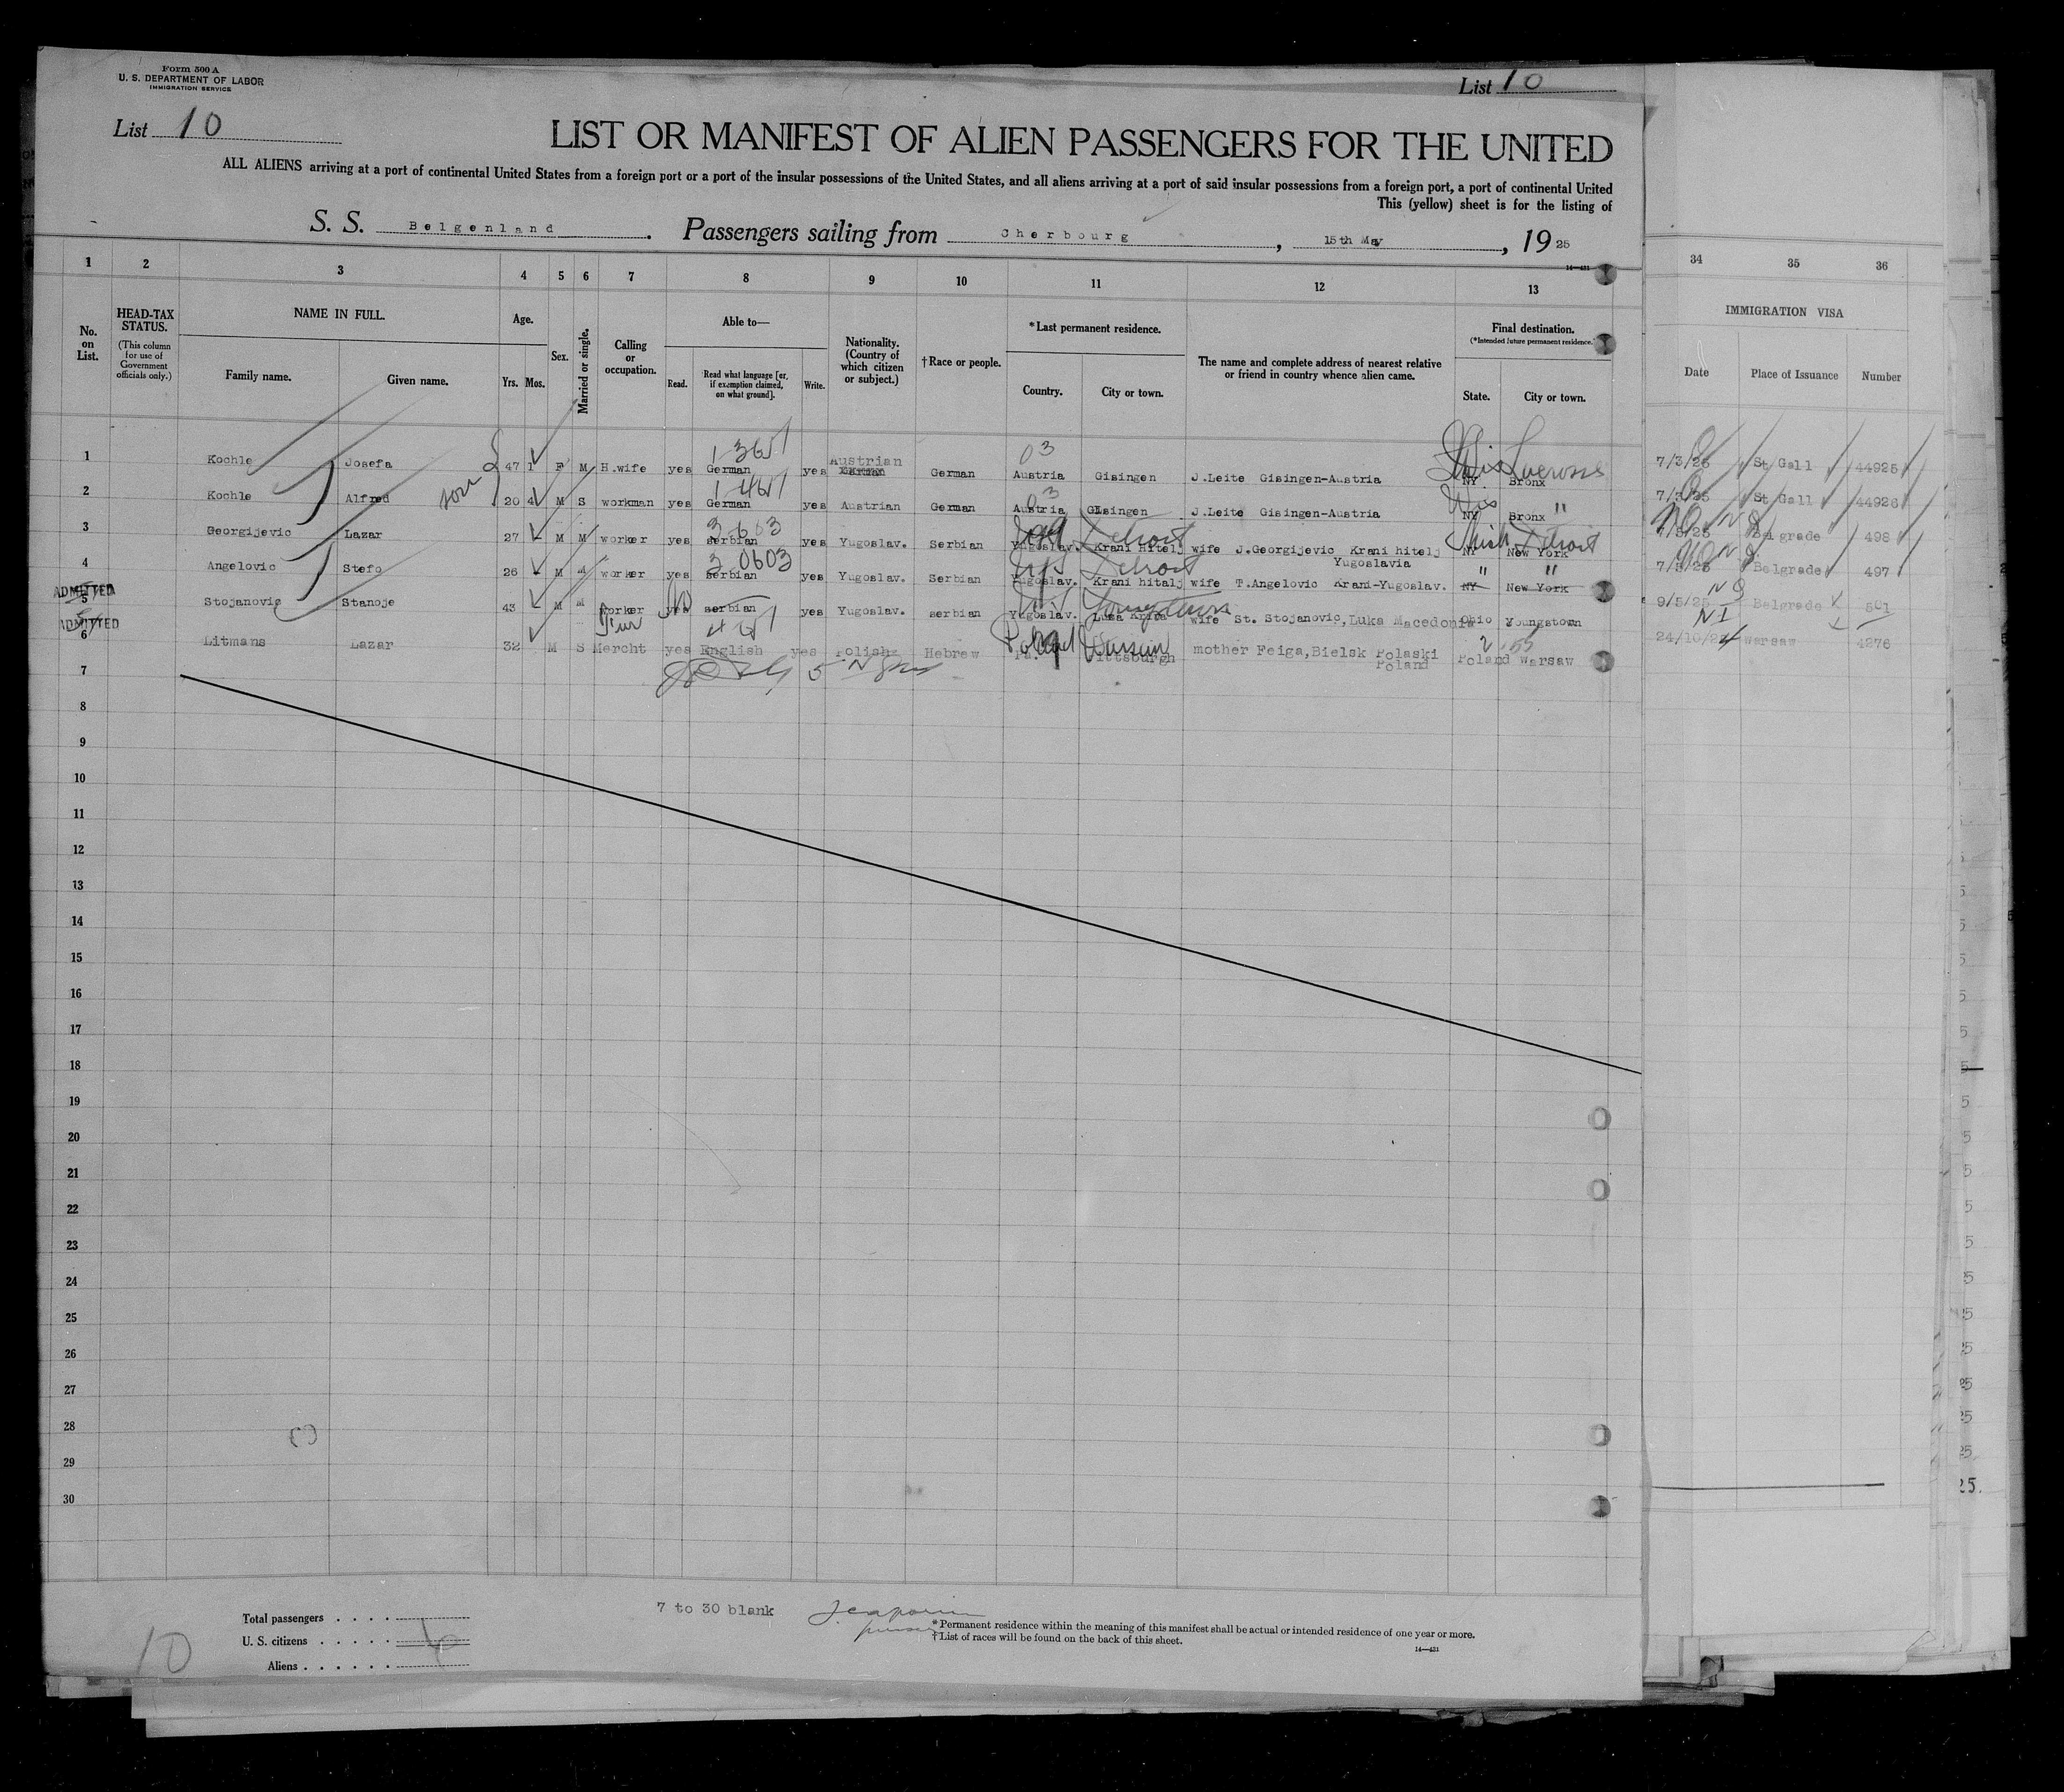 Form 500 A
U. S. DEPARTMENT OF LABOR
IMMIGRATION SERVICE
List 10
List 10
LIST OR MANIFEST OF ALIEN PASSENGERS FOR THE UNITED
ALL ALIENS arriving at a port of continental United States from a foreign port or a port of the insular possessions of the United States, and all aliens arriving at a port of said insular possessions from a foreign port, a port of continental United
This (yellow) sheet is for the listing of
S. S. Belgenland. Passengers sailing from Cherbourg, 15th May, 1925
14—431
1 2 3 4 5 6 7 8 9 10 11 12 13 34 35 36
No. on List.
HEAD-TAX STATUS.
(This column for use of Government officials only.)
NAME IN FULL.
Family name. Given name.
Age.
Yrs. Mos.
Sex.
Married or single.
Calling or occupation.
Able to—
Read. Read what language [or, if exemption claimed, on what ground]. Write.
Nationality. (Country of which citizen or subject.)
†Race or people.
*Last permanent residence.
Country. City or town.
The name and complete address of nearest relative or friend in country whence alien came.
Final destination.
(*Intended future permanent residence.)
State. City or town.
IMMIGRATION VISA
Date Place of Issuance Number
1 Kochle Josefa 47 1 F M H.wife yes German yes Austrian German Austria Gisingen J.Leite Gisingen-Austria NY Bronx 7/3/25 St Gall 44925
2 Kochle Alfred son 20 4 M S workman yes German yes Austrian German Austria Gisingen J.Leite Gisingen-Austria Wis NY Bronx " 7/3/25 St Gall 44926
3 Georgijevic Lazar 27 M M worker yes serbian yes Yugoslav. Serbian Yugoslav. Krani hitelj Detroit wife J.Georgijevic Krani hitelj Yugoslavia NY New York Detroit 7/5/25 Belgrade 498
4 Angelovic Stefo 26 M M worker yes 3 0603 serbian yes Yugoslav. Serbian Yugoslav. Krani hitalj Detroit wife T.Angelovic Krani-Yugoslav. " NY New York " 7/5/25 Belgrade 497
ADMITTED
5 Stojanovic Stanoje 43 M M worker yes serbian yes Yugoslav. serbian Yugoslav. Luka Kriva Youngstown wife St. Stojanovic,Luka Macedonia Ohio Youngstown 9/5/25 Belgrade 501
ADMITTED
6 Litmans Lazar 32 M S Mercht yes English yes Polish Hebrew Pa. Pittsburgh Poland mother Feiga,Bielsk Polaski Poland Poland Warsaw 24/10/24 Warsaw 4276
7
8
9
10
11
12
13
14
15
16
17
18
19
20
21
22
23
24
25
26
27
28
29
30
7 to 30 blank
Total passengers
U. S. citizens
Aliens
10
*Permanent residence within the meaning of this manifest shall be actual or intended residence of one year or more.
†List of races will be found on the back of this sheet.
14—431